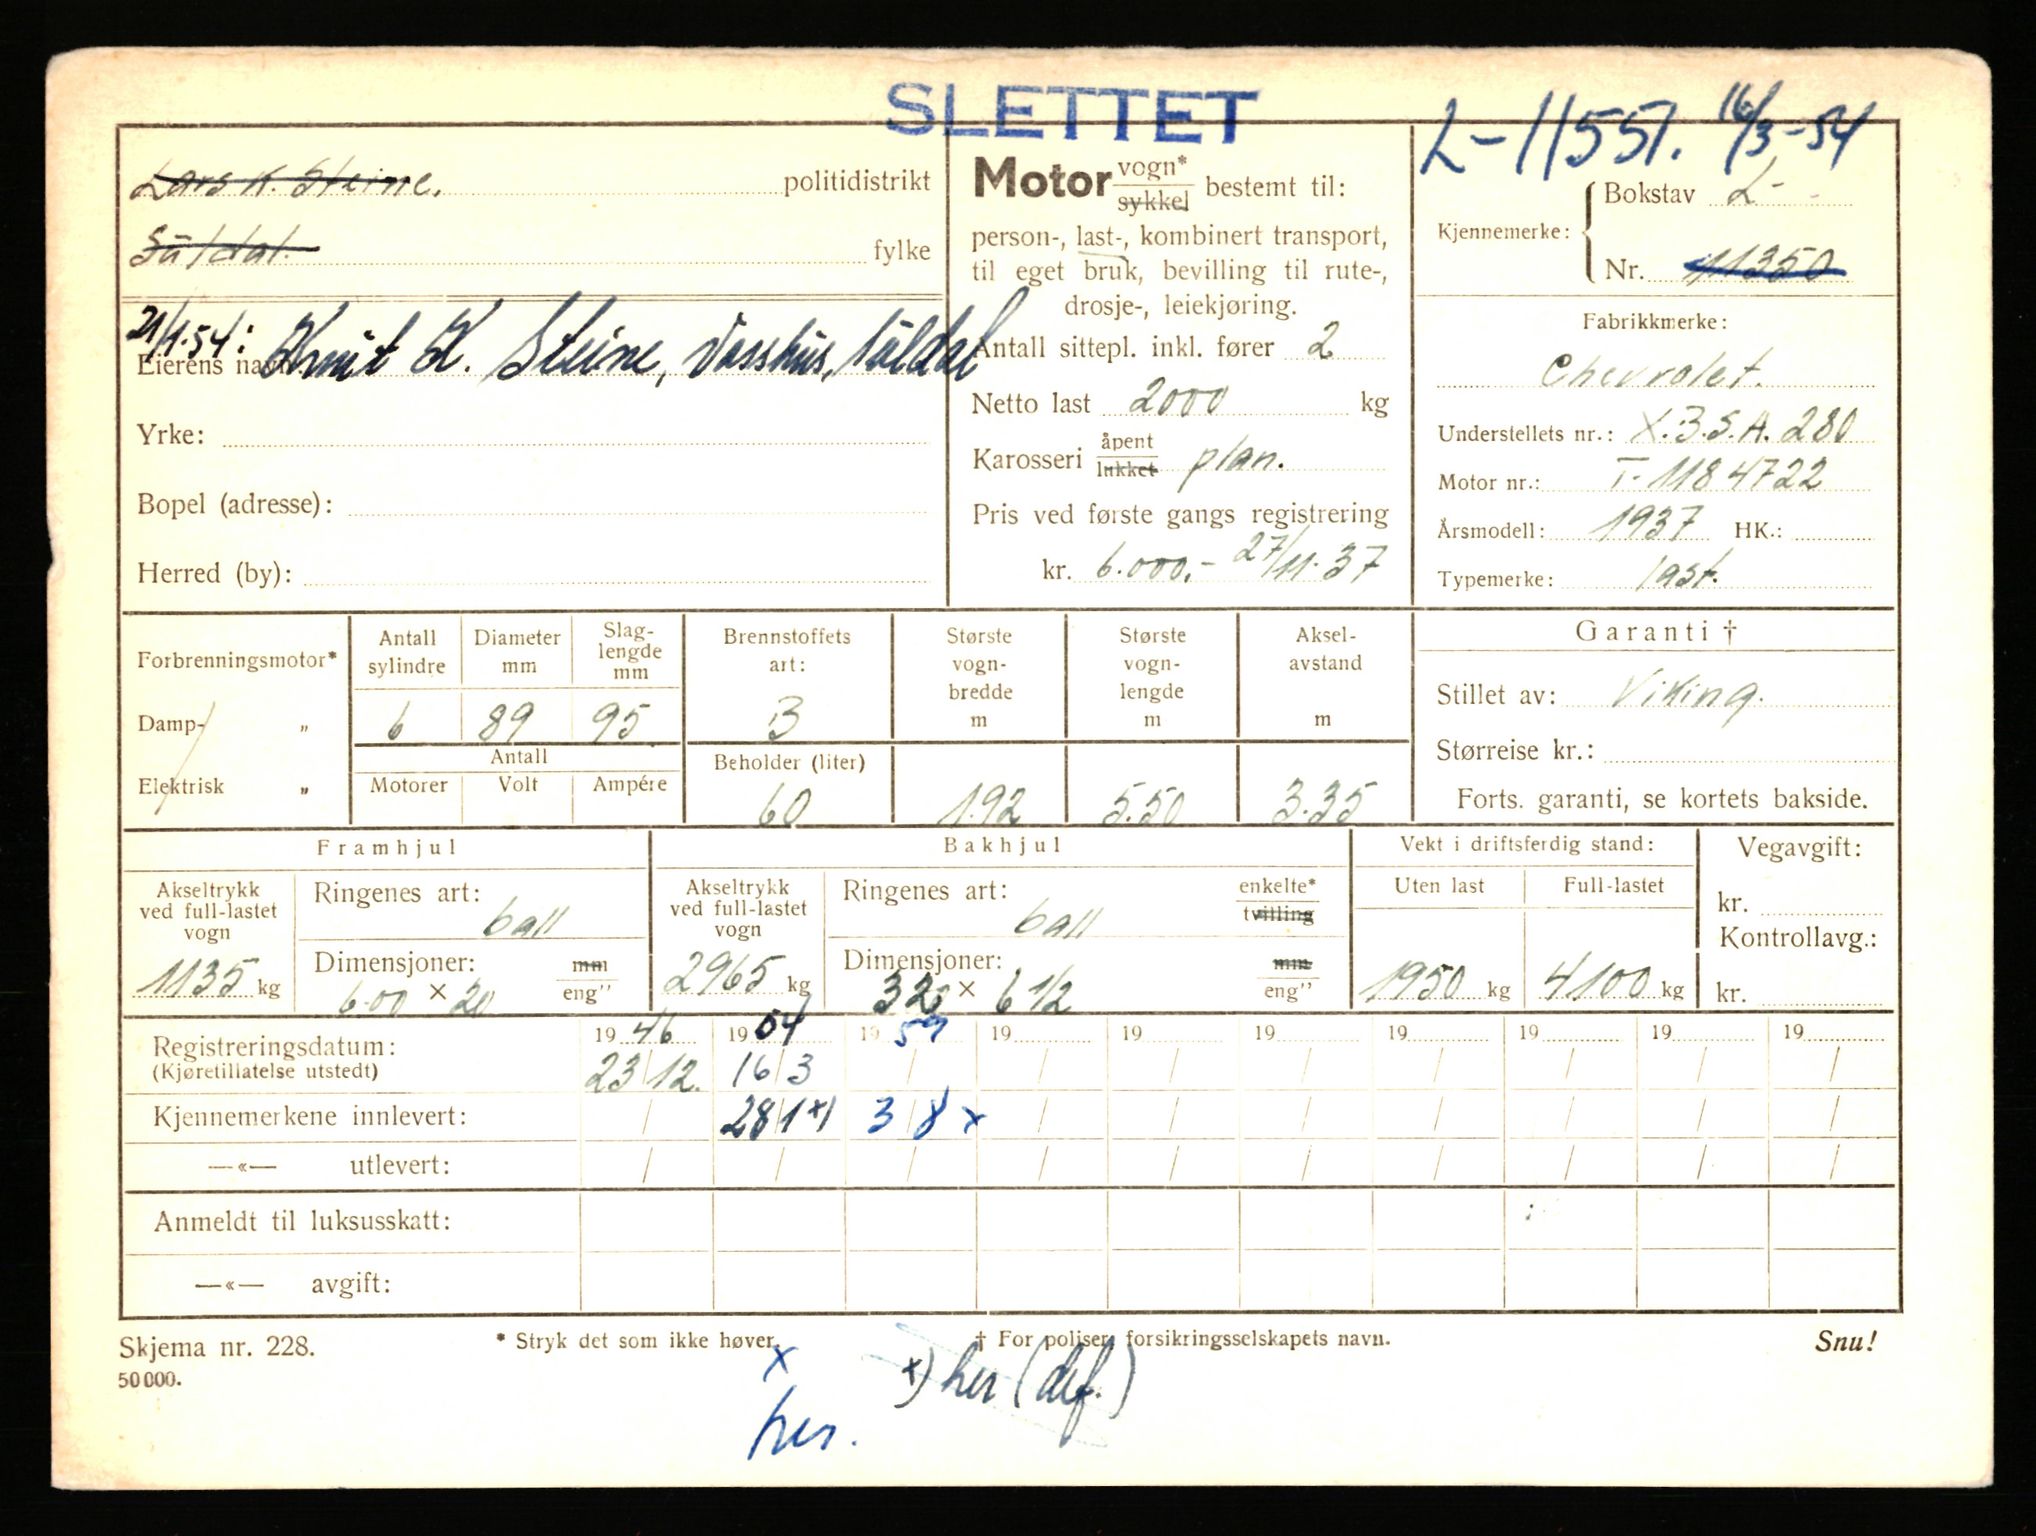 SLETTET
L-11551. 16/3-54
Lars K. Steine. politidistrikt
Suldal. fylke
21/1.54: Knut K. Steine, Vasshus, Suldal
Eierens navn
Yrke:
Bopel (adresse):
Herred (by):
Motor vogn* / sykkel bestemt til:
person-, last-, kombinert transport,
til eget bruk, bevilling til rute-,
drosje-, leiekjøring.
Antall sittepl. inkl. fører 2
Netto last 2000 kg
Karosseri åpent / lukket plan.
Pris ved første gangs registrering
kr. 6.000.- 27/11.37
Kjennemerke: Bokstav L-
Nr. 11350
Fabrikkmerke:
Chevrolet.
Understellets nr.: X.3.S.A. 280
Motor nr.: T-1184722
Årsmodell: 1937 HK.:
Typemerke: last.
Forbrenningsmotor*
Damp- „
Elektrisk „
Antall sylindre 6
Diameter mm 89
Slag-
lengde
mm 95
Antall
Motorer Volt Ampére
Brennstoffets
art:
B
Beholder (liter)
60
Største
vogn-
bredde
m
1.92
Største
vogn-
lengde
m
5.50
Aksel-
avstand
m
3.35
Garanti †
Stillet av: Viking.
Størreise kr.:
Forts. garanti, se kortets bakside.
Framhjul
Akseltrykk
ved full-lastet
vogn
1135 kg
Ringenes art:
ball
Dimensjoner: mm / eng"
6.00 × 20
Bakhjul
Akseltrykk
ved full-lastet
vogn
2965 kg
Ringenes art: enkelte* / tvilling
ball
Dimensjoner: mm / eng"
32 × 6 1/2
Vekt i driftsferdig stand:
Uten last Full-lastet
1950 kg 4100 kg
Vegavgift:
kr.
Kontrollavg.:
kr.
Registreringsdatum: 19 46 19 54 19 59 19 19 19 19 19 19 19
(Kjøretillatelse utstedt) 23/12. 16/3 / / / / / / / /
Kjennemerkene innlevert: / 28/1 x) 3/8 x / / / / / / /
—«— utlevert: / / / / / / / / / /
Anmeldt til luksusskatt:
—«— avgift:
Skjema nr. 228.
50000.
* Stryk det som ikke høver.
† For poliser, forsikringsselskapets navn.
Snu!
x
her.
x) her (def.)